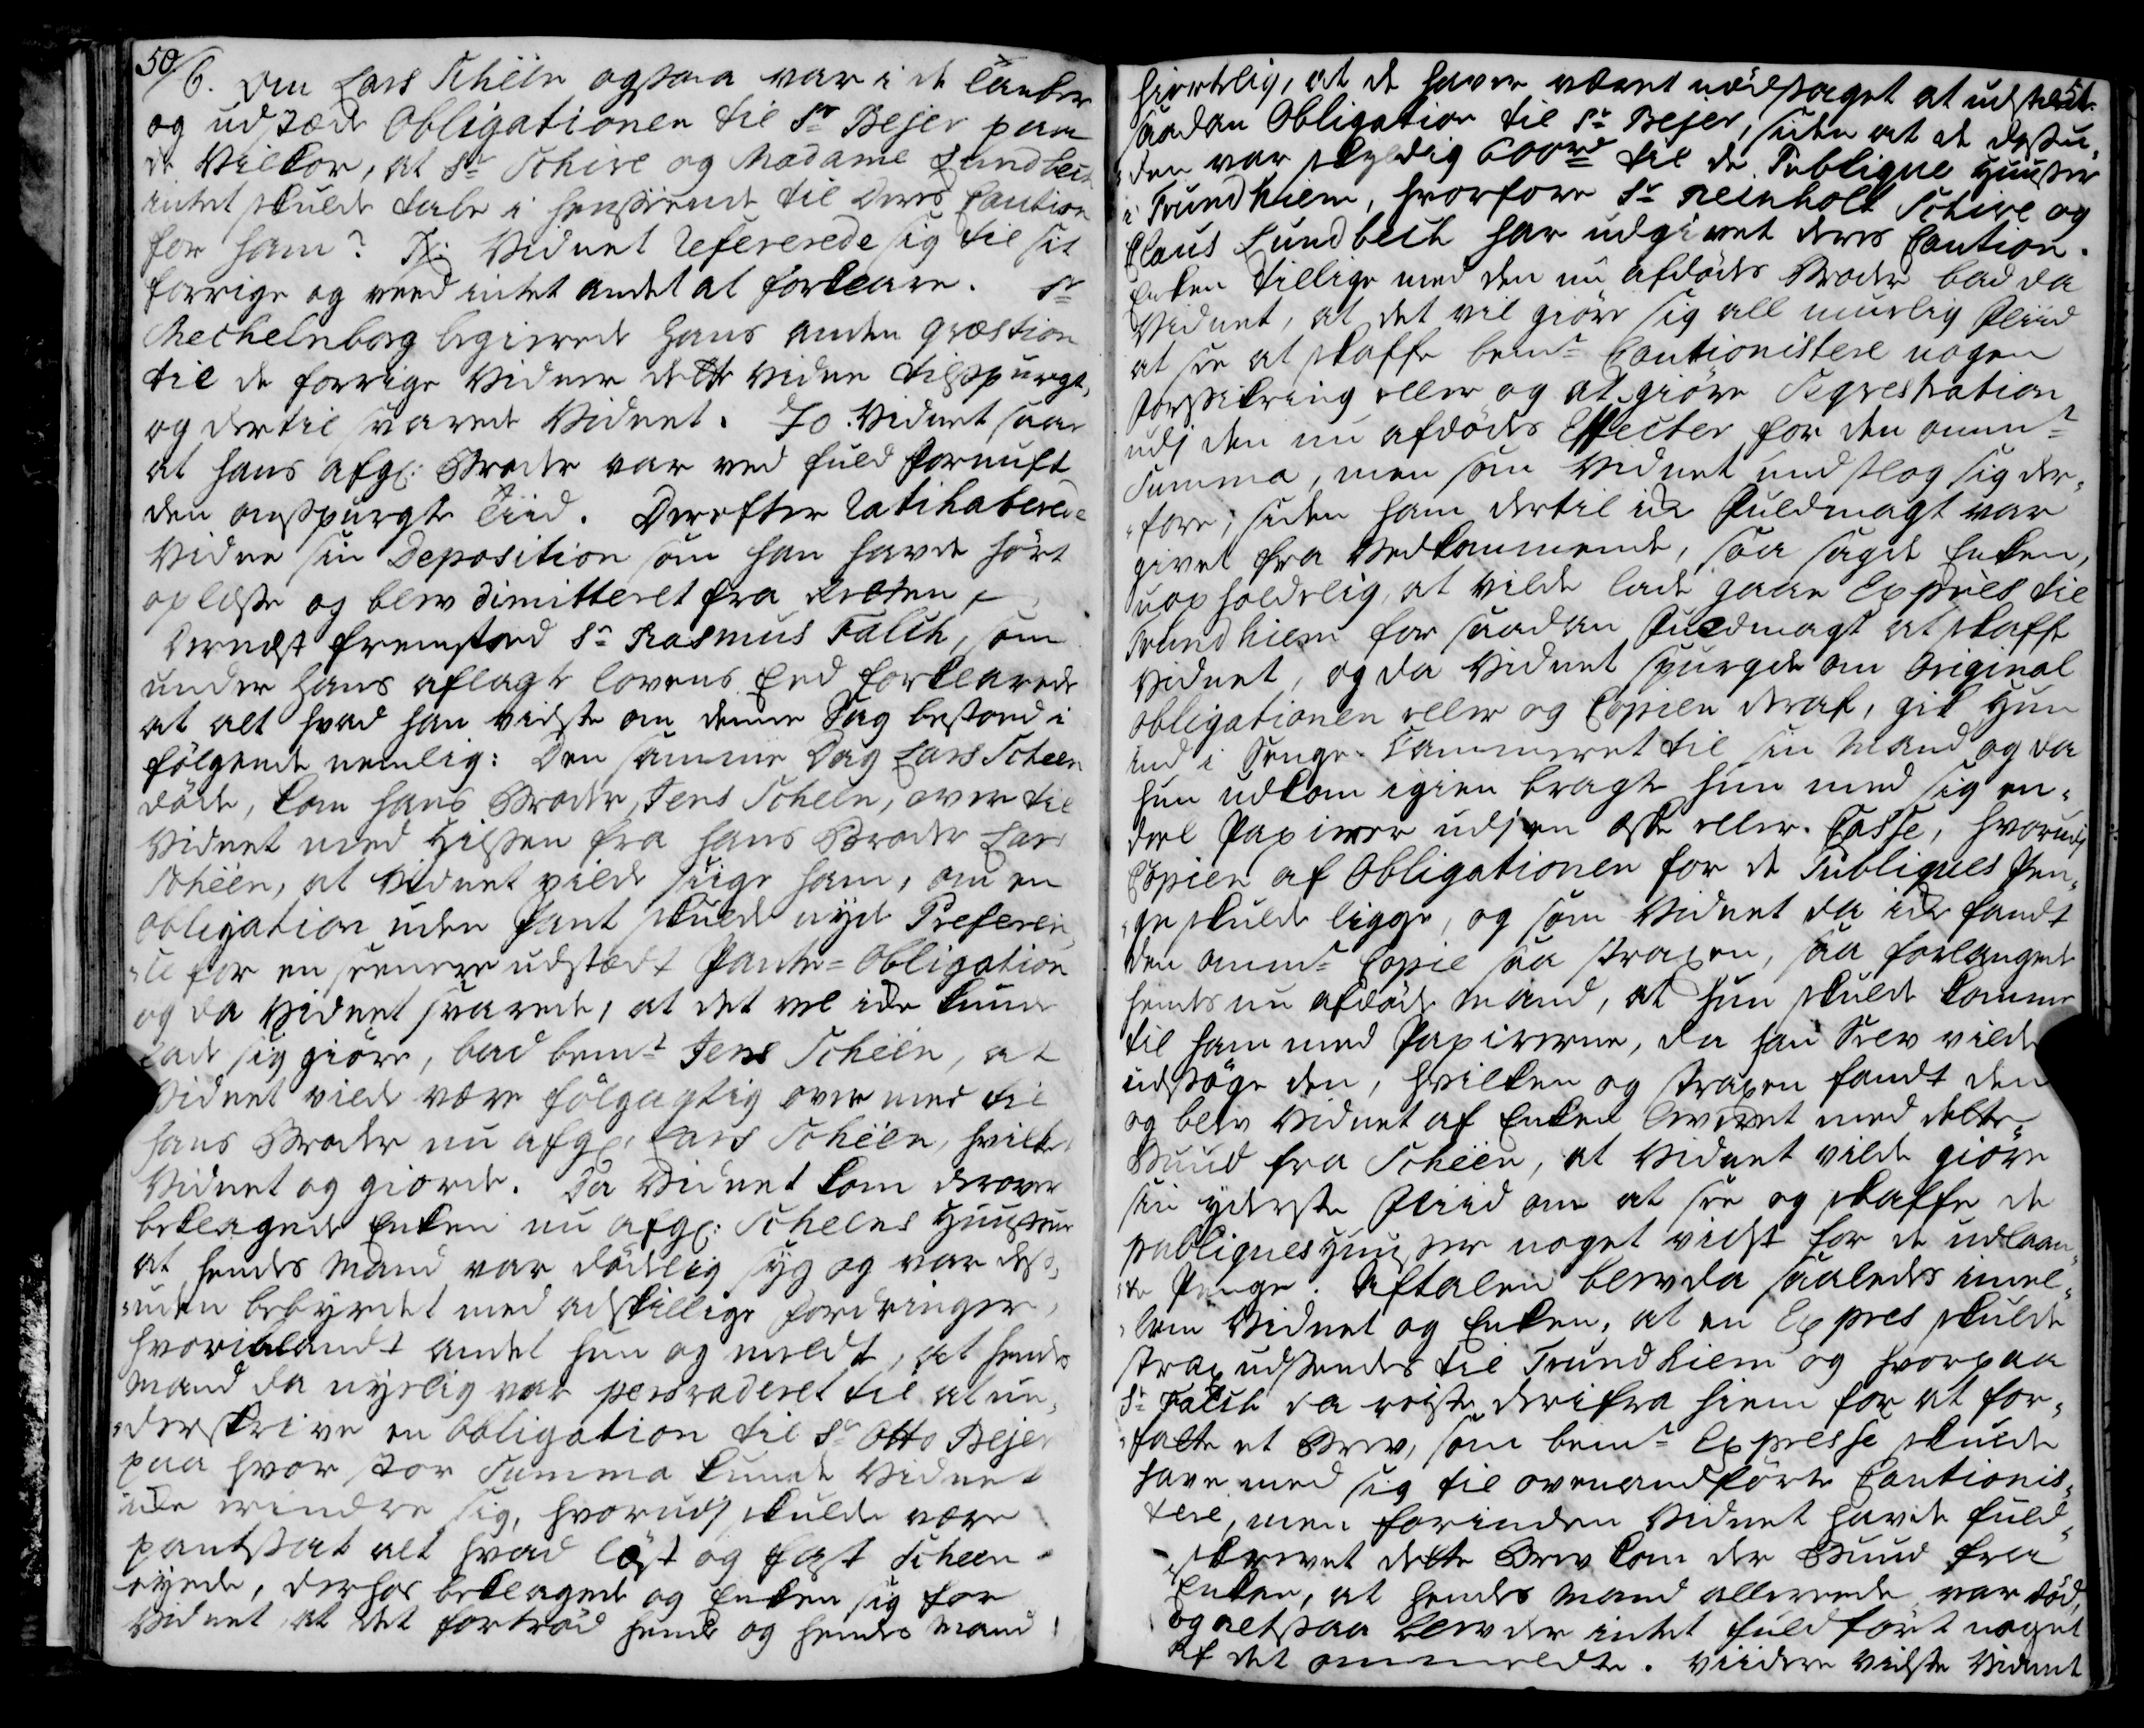 50
6. Om Lars Schëen ogsaa var i de Tanker
og udstæde Obligationen til Sr Bejer paa
de Vilkor, at Sr Schive og Madame Lundbech
intet skulde tabe i henseende til deres Caution
for ham? Rx: Vidnet refererede sig til sit
forrige og veed intet andet at forklare. Sr
Mechelnborg begierede hans anden Qvæstion
til de forrige Vidner dette Vidne tilspurgt,
og dertil svarede Vidnet. Jo. Vidnet saae
at hans afg: Broder var ved fuld Fornuft
den omspurgte Tiid. Derefter ratihaberede
Vidne sin Deposition som han havde hört
oplæse og blev dimitteret fra Retten
Dernæst fremstoed Sr Rasmus Falch, som
under hans aflagte lovens Eed forklarede
at alt hvad han vidste om denne Sag bestoed i
fölgende nemlig: Den samme Dag Lars Scheen
döde, kom hans Broder, Jens Scheln, over til
Vidnet med Hilsen fra hans Broder Lars
Schëen, at Vidnet vilde siige ham, om en
obligation uden Pant skulde nyde Preferen,
ce for en seenere udstædt Pante-Obligation
og da Vidnet svarede, at det vel ikke kunde
lade sig giöre, bad bemte Jens Schëen, at
Vidnet vilde være fölgagtig over med til
hans Broder nu afg: Lars Schëen, hvilket
Vidnet og giorde. Da Vidnet kom derover
beklagede Enken nu afg: Schelns Huustrue
at hendes Mand var dödelig syg og var des,
uden bebyrdet med adskillige fordringer,
hvoriblandt andet hun og meldte, at hendes
Mand da nyelig var persvaderet til at un,
derskrive en Obligation til Sr Otto Bejer
paa hvor stor Summa kunde Vidnet
ikke erindre sig, hvorudj skulde være
pantsat alt hvad löst og fast Scheen
eyede, derhos beklagede og Enken sig for
Vidnet at det fortröd hende og hendes Mand
hiertelig, at de haver været nödsaget at udstædt
saadan Obligation til Sr Bejer, siden at de desu,
den var skyldig 600rd til de Publique Huuser
i Trundhiem, hvorfore Sr Reinholt Schive og
Claus Lundbech har udgivet deres Caution.
Enken tillige med den nu afdödes Broder bad da
Vidnet, at det vil giöre sig all muelig Fliid
at see at skaffe bemte Cautionistere nogen
Forsikring eller og at giöre Seqvestration
udj den nu afdödes Effecter for den ommte
Summa, men som Vidnet undslog sig der,
fore, siden ham dertil ike Fuldmagt var
givet fra Vedkommende, saa sagde Enken,
uopholdelig, at vilde lade gaae Express til
Trundhiem for saadan Fuldmagt at skaffe
Vidnet, og da Vidnet spurgte om Original
obligationen eller og Copien deraf, gik Hun
ind i Senge-Kammeret til sin Mand og da
hun udkom igien bragte hun med sig en,
deel Papierer udj en Æske eller Casse, hvorudj
Copien af Obligationen for de Publiques Pen,
ge skulde ligge, og som Vidnet da ike fandt
den ommte Copie saa straxen, saa forlangede
hendes nu afdöde Mand, at hun skulde komme
til ham med Papirerne, da han Selv vilde
udsöge den, hvilken og straxen fandt den
og blev Vidnet af Enken leveret med dette
Buud fra Schëen, at Vidnet vilde giöre
sin yderste Fliid om at see og skaffe de
publiques Huuser noget vidst for de udlaan,
te Penge. Aftalen blev da saaledes imel,
lem Vidnet og Enken, at en Expres skulde
strax udsendes til Trundhiem og hvorpaa
Sr Falch da reiste derifra hiem for at for,
fatte et Brev, som bemte Expresse skulde
have med sig til ovenanförte Cautionis,
tere, men forinden Vidnet havde fuld,
skrevet dette Brev kom der Buud fra
Enken, at hendes Mand allerede var död,
og altsaa blev der intet fuldfört noget
af det ommeldte. Viidere vidste Vidnet